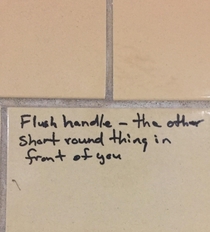 Flush handle – the other
short round thing in
front of you